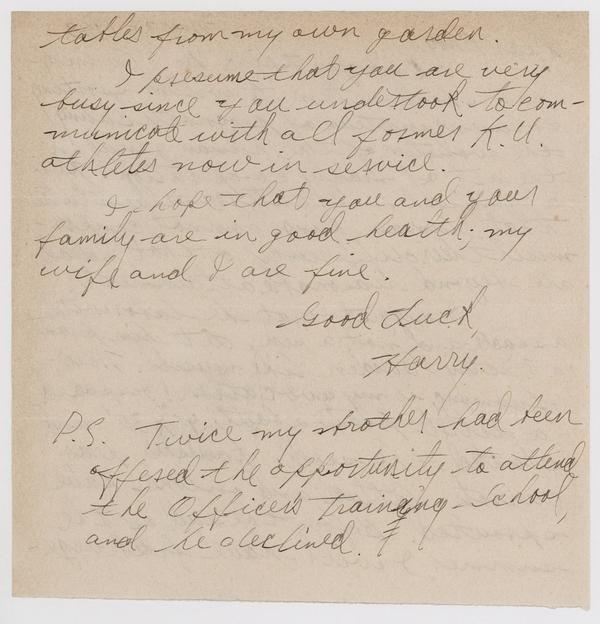 tables from my own garden.
I presume that you are very
busy since you undertook to com-
municate with all former K.U.
athletes now in service.
I hope that you and your
family are in good health; my
wife and I are fine.
Good Luck,
Harry.
P.S. Twice my brother had been
offered the opportunity to attend
the Officers Training School,
and he declined.